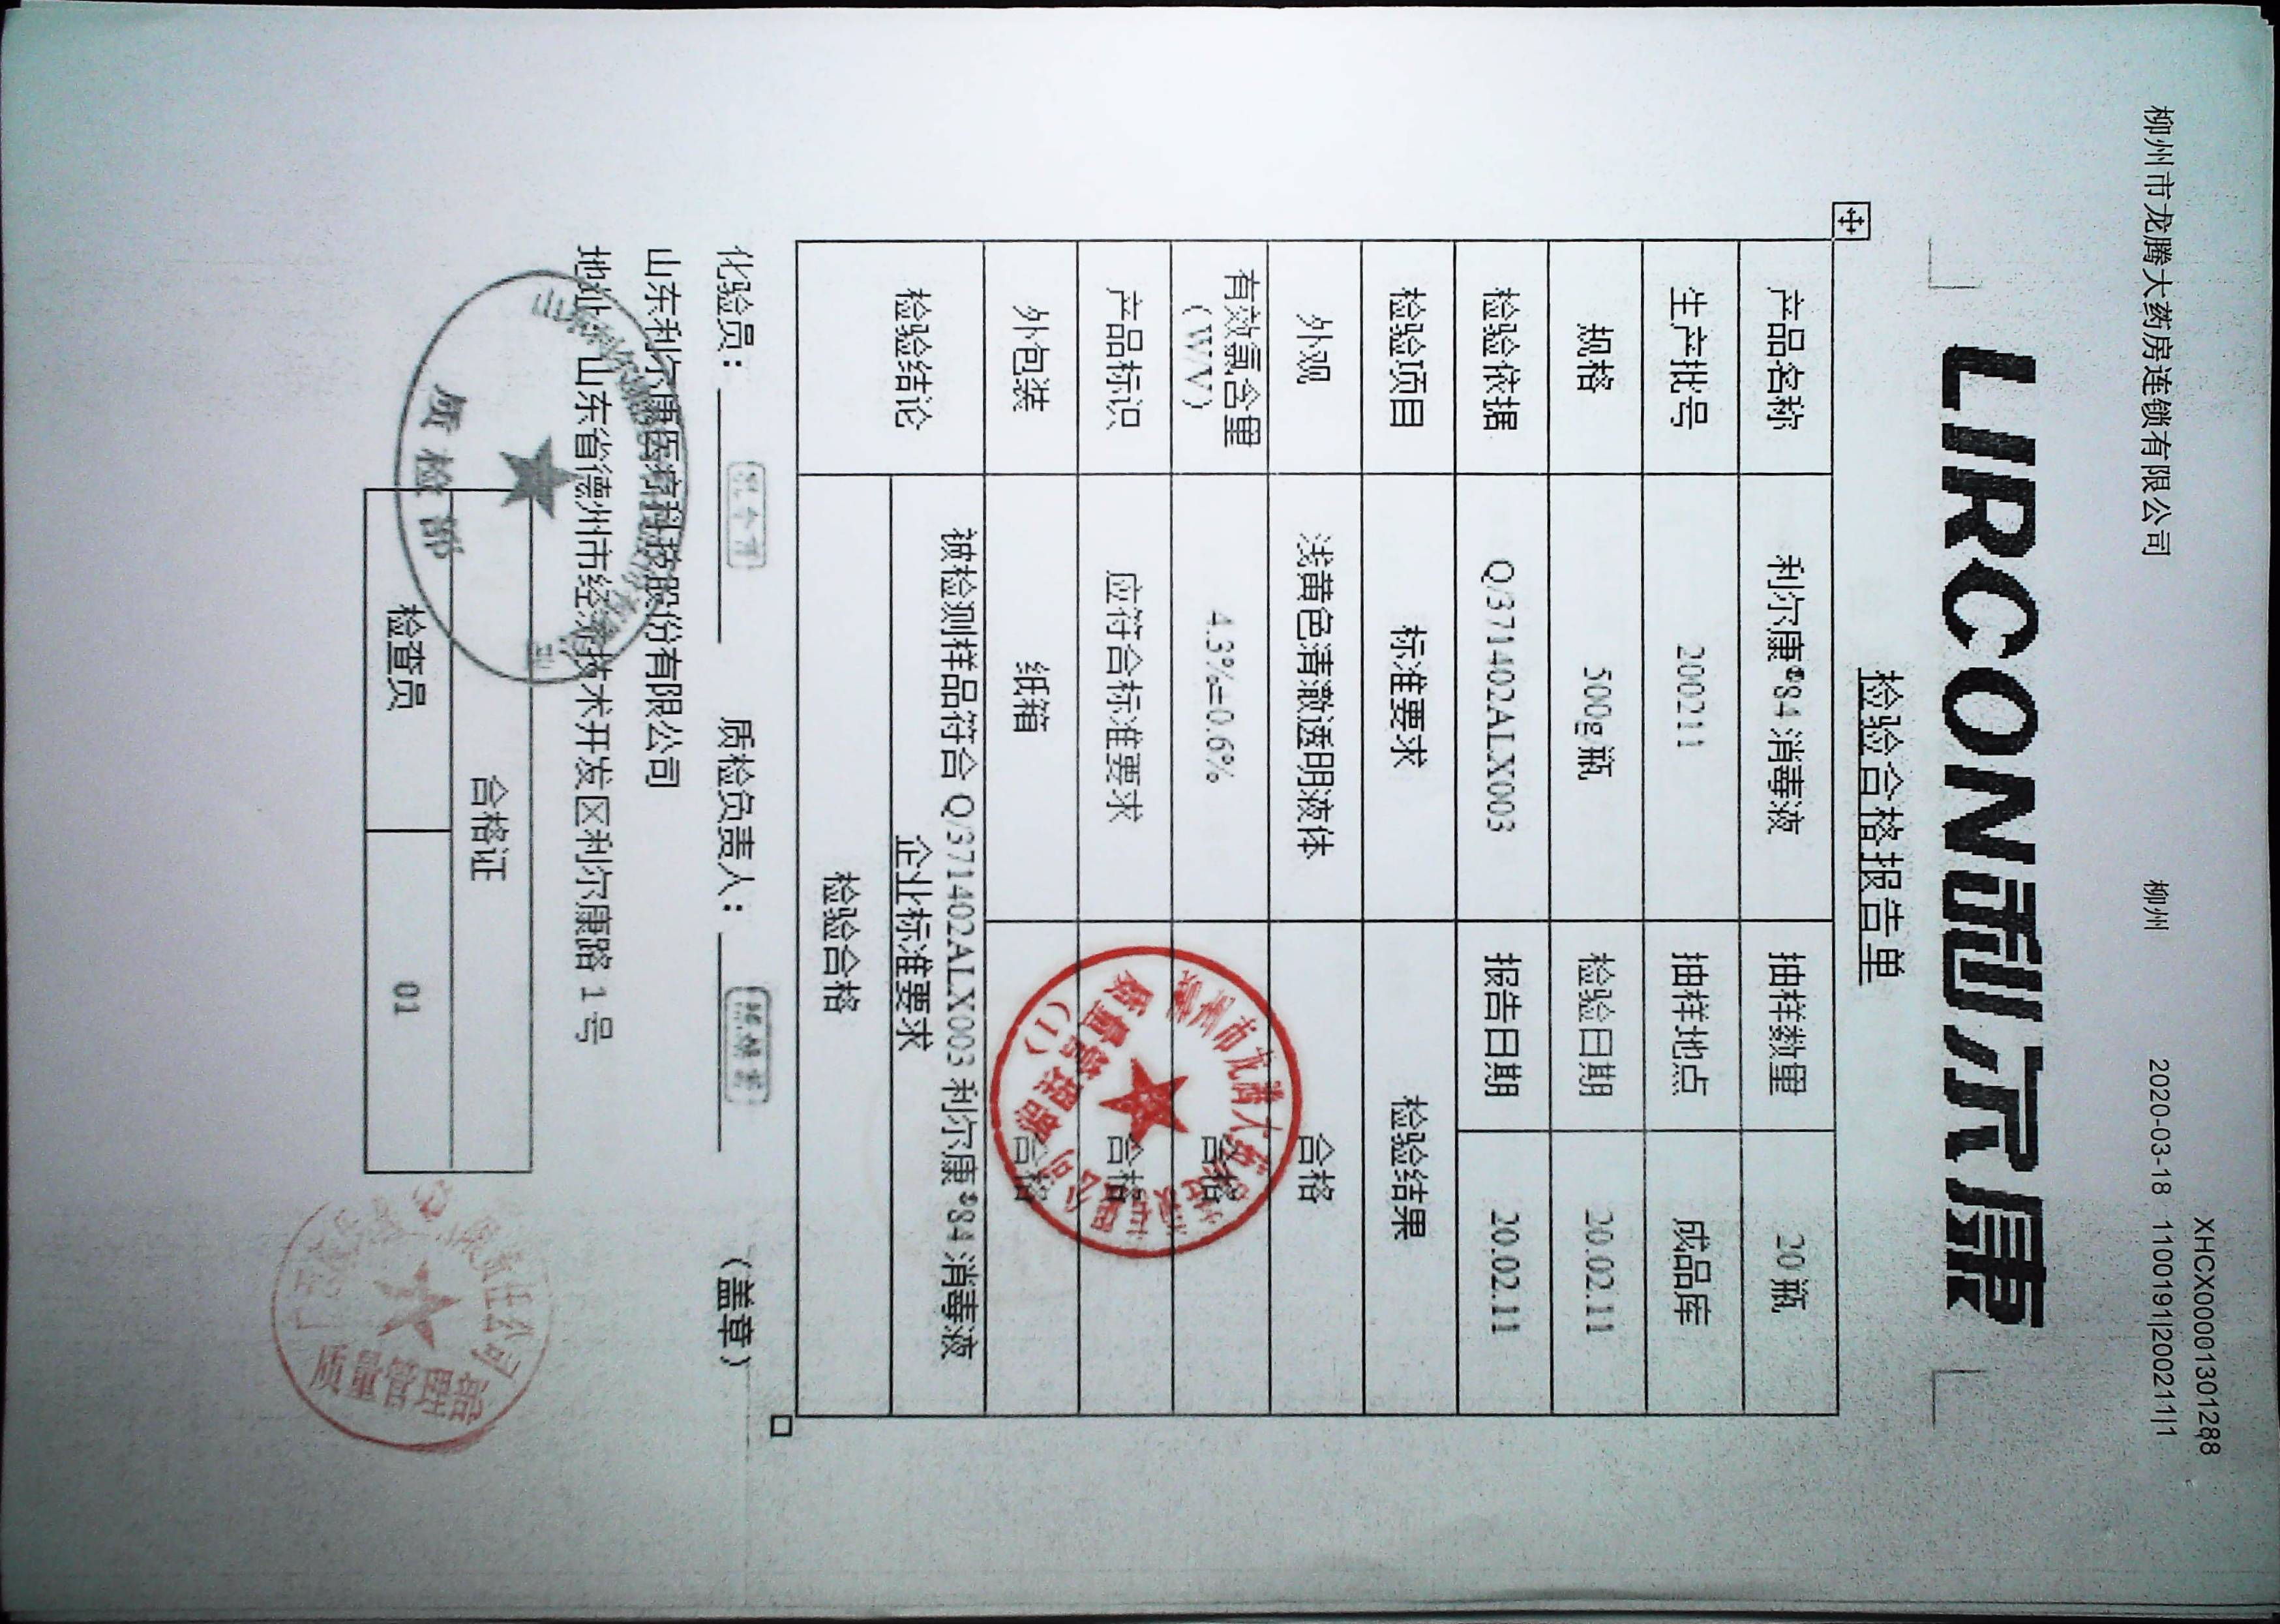 XHCX00001301288
柳州市龙腾大药房连锁有限公司 柳州 2020-03-18 1100191|200211|1
LIRCON利尔康
检验合格报告单
产品名称 利尔康®84消毒液 抽样数量 20瓶
生产批号 200211 抽样地点 成品库
规格 500g/瓶 检验日期 20.02.11
检验依据 Q/371402ALX003 报告日期 20.02.11
检验项目 标准要求 检验结果
外观 浅黄色清澈透明液体 合格
有效氯含量
(W/V) 4.3%±0.6% 合格
产品标识 应符合标准要求 合格
外包装 纸箱 合格
检验结论 被检测样品符合 Q/371402ALX003 利尔康®84消毒液
企业标准要求
检验合格
柳州市龙腾大药房连锁有限公司
质量管理部
(1)
化验员: 质检负责人: (盖章)
山东利尔康医疗科技股份有限公司
地址: 山东省德州市经济技术开发区利尔康路1号
质检部
合格证
检查员 01
责任公司
质量管理部